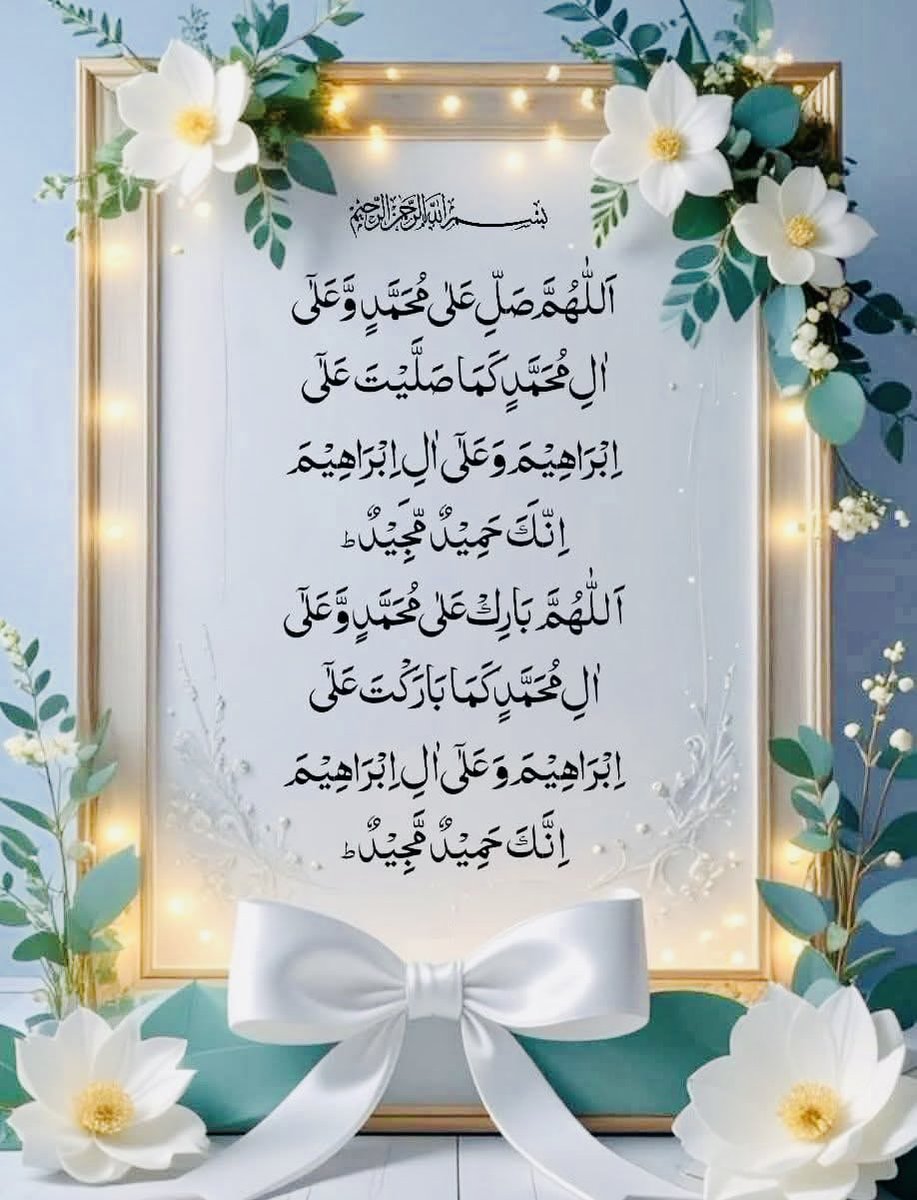 بِسْمِ اللّٰهِ الرَّحْمٰنِ الرَّحِيْمِ
اَللّٰهُمَّ صَلِّ عَلٰى مُحَمَّدٍ وَّعَلٰٓى
اٰلِ مُحَمَّدٍ كَمَا صَلَّيْتَ عَلٰٓى
اِبْرَاهِيْمَ وَعَلٰٓى اٰلِ اِبْرَاهِيْمَ
اِنَّكَ حَمِيْدٌ مَّجِيْدٌ ؕ
اَللّٰهُمَّ بَارِكْ عَلٰى مُحَمَّدٍ وَّعَلٰٓى
اٰلِ مُحَمَّدٍ كَمَا بَارَكْتَ عَلٰٓى
اِبْرَاهِيْمَ وَعَلٰٓى اٰلِ اِبْرَاهِيْمَ
اِنَّكَ حَمِيْدٌ مَّجِيْدٌ ؕ